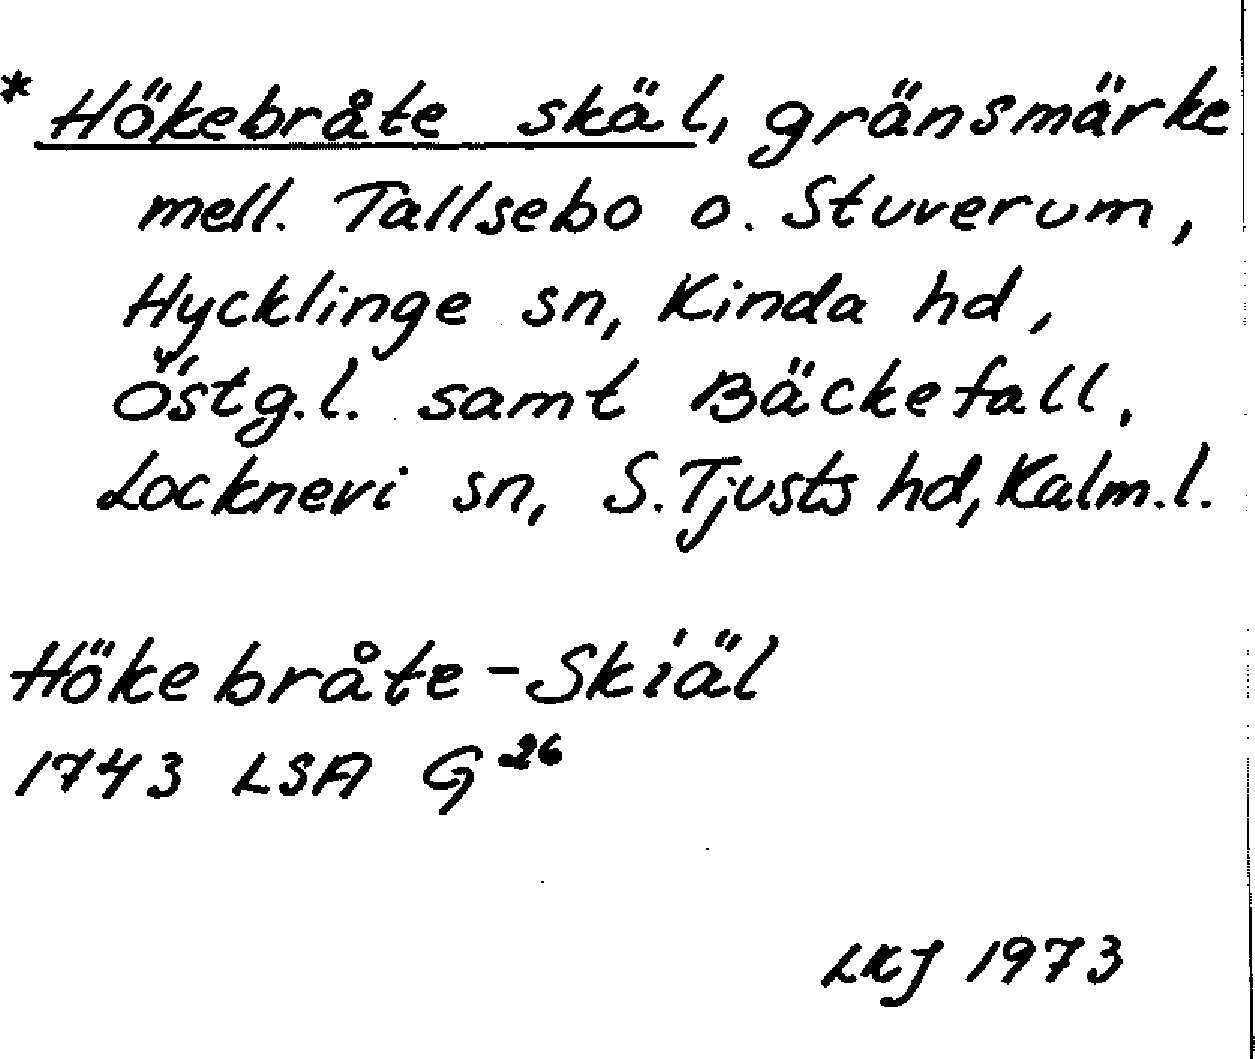 * Hökebråte skäl, gränsmärke
mell. Tallsebo o. Stuverum,
Hycklinge sn, Kinda hd,
Östg.l. samt Bäckefall,
Locknevi sn, S. Tjusts hd, Kalm.l.
Hökebråte-Skiäl
1743 LSA G 26
LKJ 1973